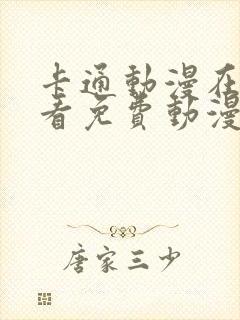 卡通動漫在
看免費動漫
唐家三少